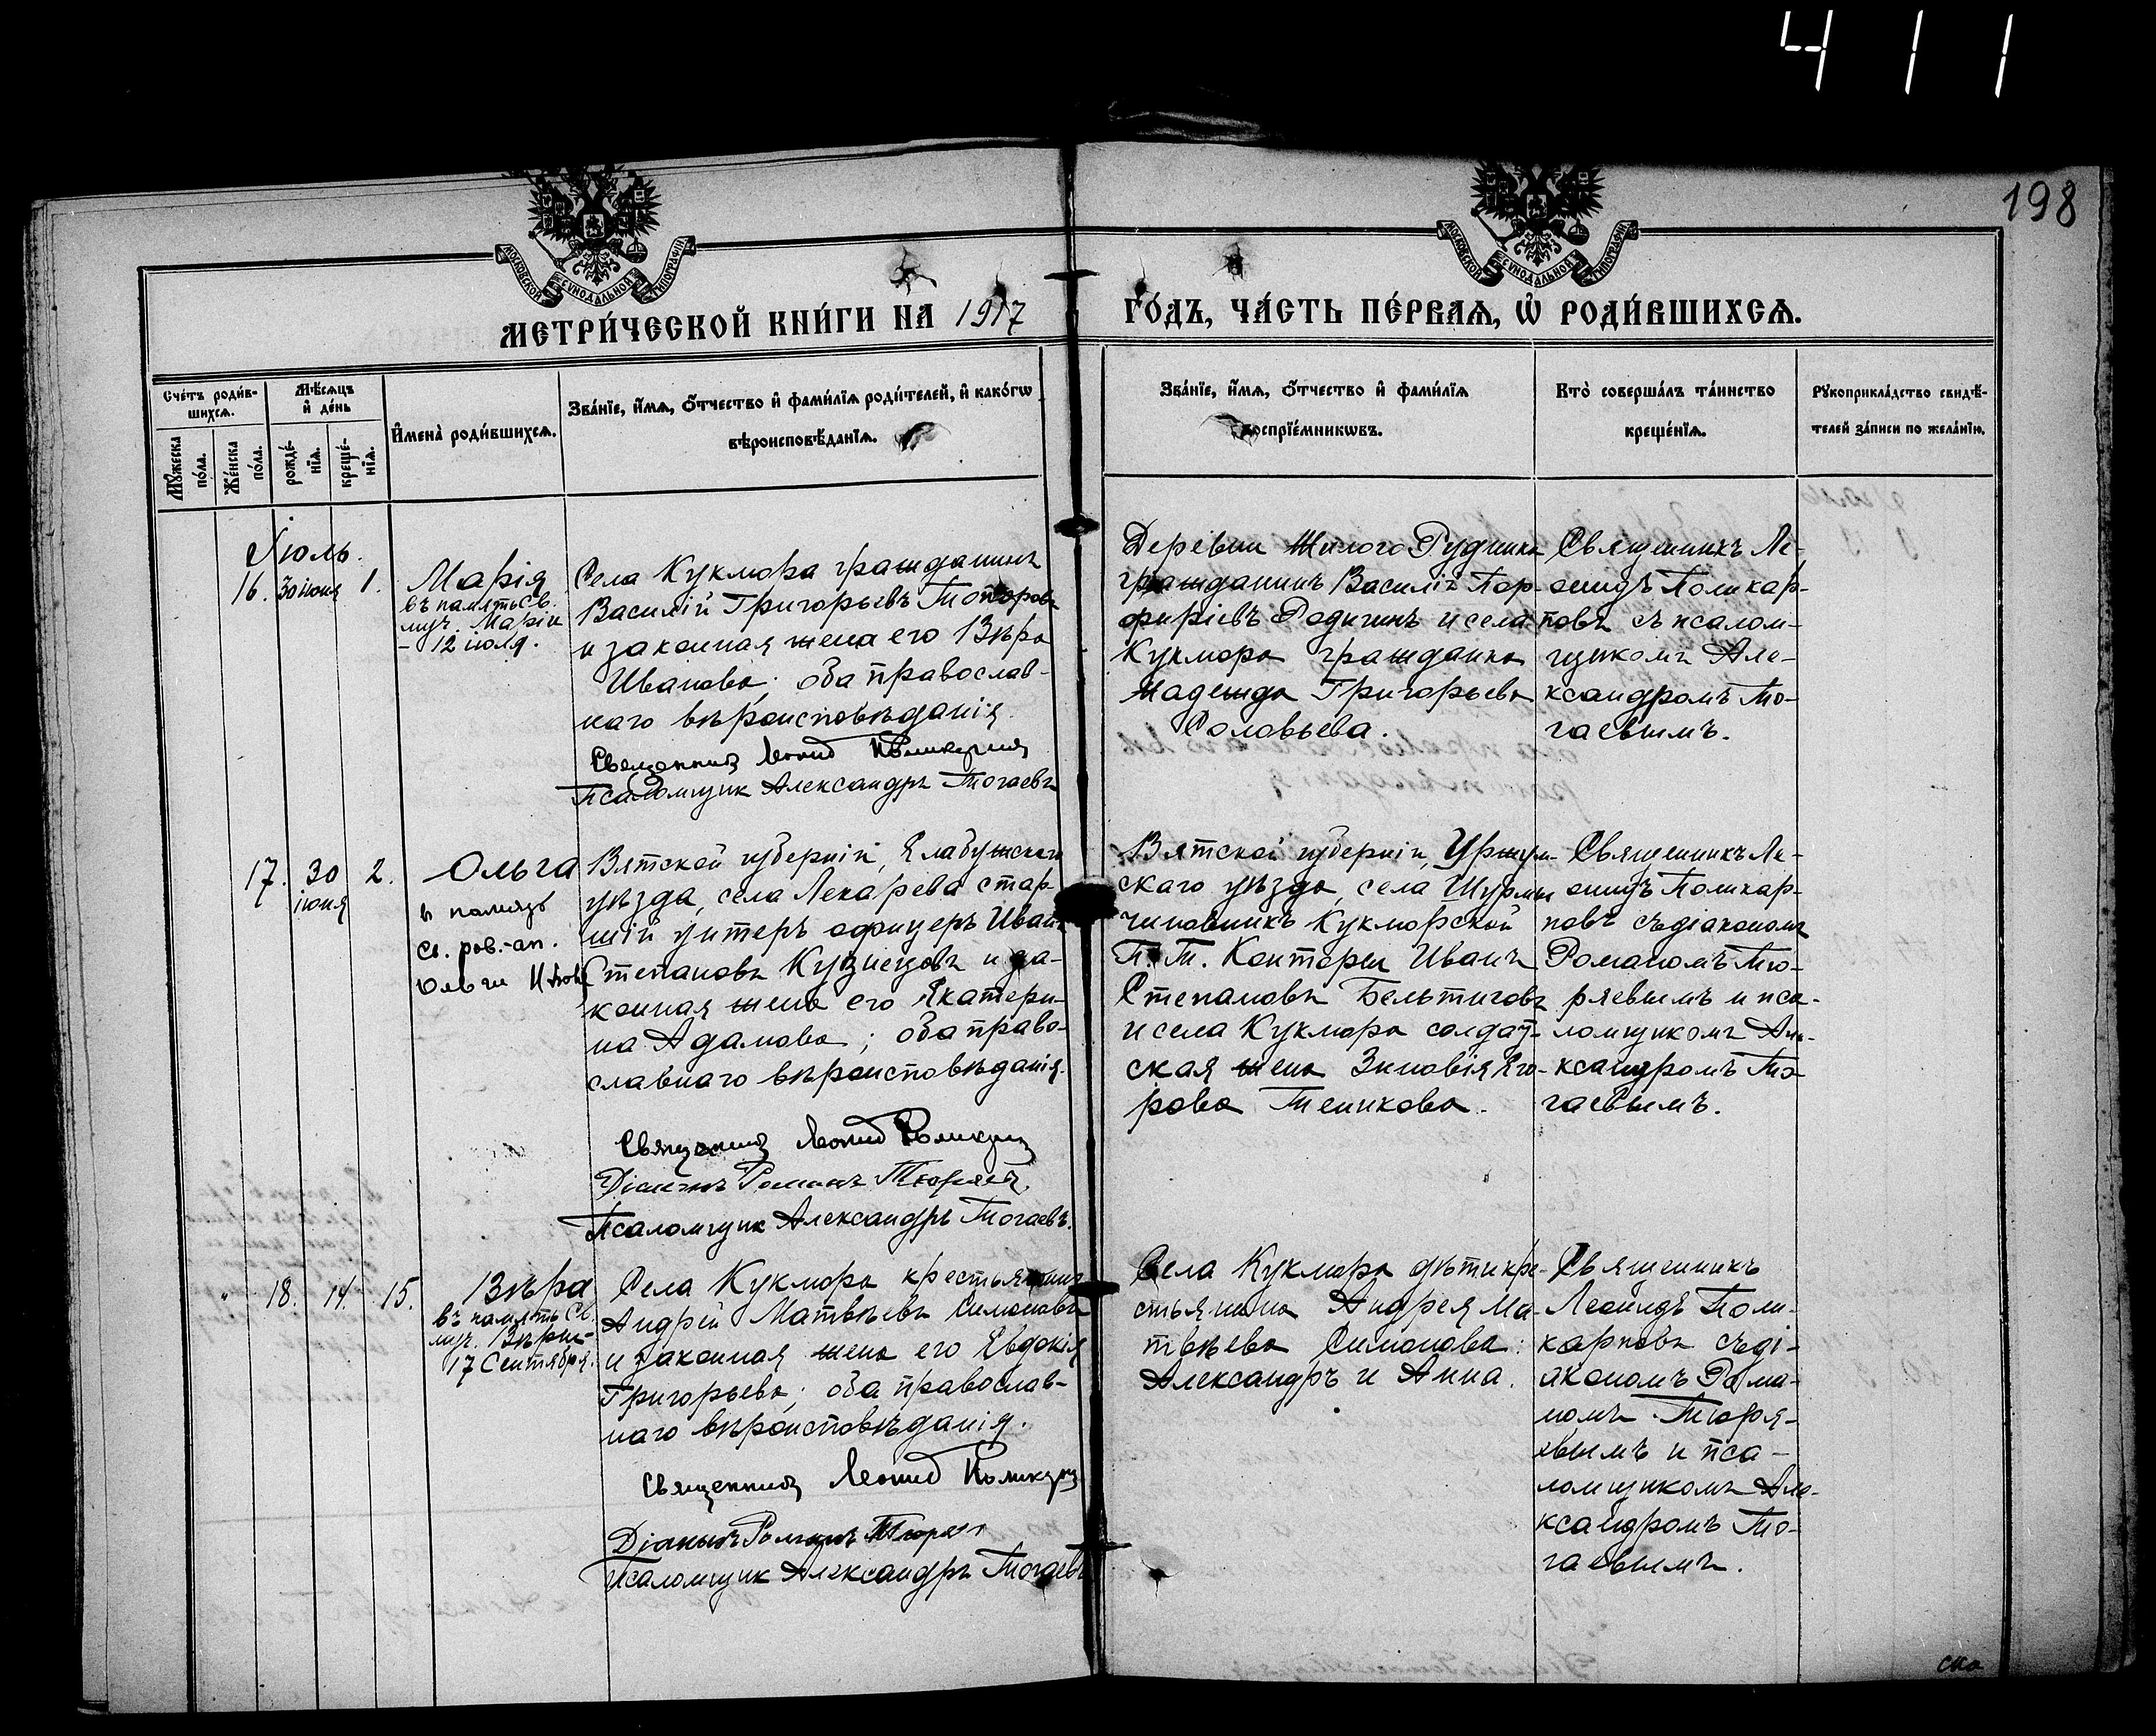 411
198
МОСКОВСКОЙ СѴНОДАЛЬНОЙ ТИПОГРАФІИ
МОСКОВСКОЙ СѴНОДАЛЬНОЙ ТИПОГРАФІИ
МЕТРИ́ЧЕСКОЙ КНИ́ГИ НА 1917
ГО́ДЪ, ЧА́СТЬ ПЕ́РВАѦ, Ѡ РОДИ́ВШИХСѦ.
Сче́тъ роди́в-
шихсѧ.
Мѣ́сѧцъ
и҆ де́нь
Мꙋ́жеска
по́ла.
Же́нска
по́ла.
рожде́-
нїѧ.
креще́-
нїѧ.
И҆мена̀ роди́вшихсѧ.
Зва́нїе, и҆́мѧ, ѻ҆́тчество и҆ фами́лїѧ роди́телей, и҆ како́гѡ
вѣроисповѣ́данїѧ.
Зва́нїе, и҆́мѧ, ѻ҆́тчество и҆ фами́лїѧ
воспрїе́мникѡвъ.
Кто̀ соверша́лъ та́инство
креще́нїѧ.
Рꙋкоприкла́дство свидѣ́-
телей за́писи по жела́нїю.
Іюль.
16. 30 іюня 1.
Марія
въ память Св.
муч. Маріи
- 12 іюля.
Села Кукмора гражданинъ
Василій Григорьевъ Топоровъ
и законная жена его Вѣра
Иванова; оба православ-
наго вѣроисповѣданія.
Священникъ Леонид Поликарповъ
Псаломщик Александръ Тогаевъ
Деревни Жилого Рудника
гражданинъ Василій Пор-
фиріевъ Родигинъ и села
Кукмора гражданка
Надежда Григорьева
Соловьева.
Священникъ Ле-
онидъ Поликар-
повъ съ псалом-
щикомъ Але-
ксандромъ То-
гаевымъ.
17. 30 іюня 2.
Ольга
въ память
св. рав.-ап.
Ольги
Вятской губерніи, Елабужскаго
уѣзда, села Лекарева стар-
шій унтеръ офицеръ Иванъ
Степановъ Кузнецовъ и за-
конная жена его Екатери-
на Адамова; оба право-
славнаго вѣроисповѣданія.
Священникъ Леонид Поликарповъ
Діаконъ Романъ Тюряевъ.
Псаломщик Александръ Тогаевъ.
Вятской губерніи, Уржум-
скаго уѣзда, села Шурмы
чиновникъ Кукморской
П. Т. Конторы Иванъ
Степановъ Бельтюговъ
и села Кукмора солдат-
ская жена Зиновія Его-
рова Теникова.
Священникъ Ле-
онидъ Поликар-
повъ съ діакономъ
Романомъ Тю-
ряевымъ и пса-
ломщикомъ Але-
ксандромъ То-
гаевымъ.
18. 14. 15.
Вѣра
въ память Св.
муч. Вѣры -
17 Сентября.
Села Кукмора крестьянинъ
Андрей Матвѣевъ Симоновъ
и законная жена его Евдокія
Григорьева; оба православ-
наго вѣроисповѣданія.
Священникъ Леонид Поликарповъ
Діаконъ Романъ Тюряевъ
Псаломщик Александръ Тогаевъ
Села Кукмора дѣти кре-
стьянина Андрея Ма-
твѣева Симонова:
Александръ и Анна.
Священникъ
Леонидъ Поли-
карповъ съ ді-
акономъ Рома-
номъ Тюря-
евымъ и пса-
ломщикомъ Але-
ксандромъ То-
гаевымъ.
ска